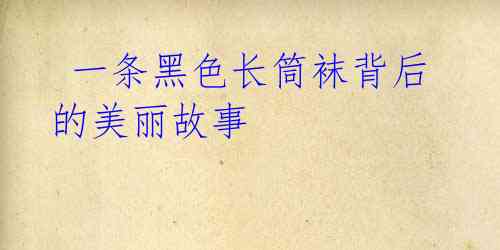 一条黑色长筒袜背后
的美丽故事